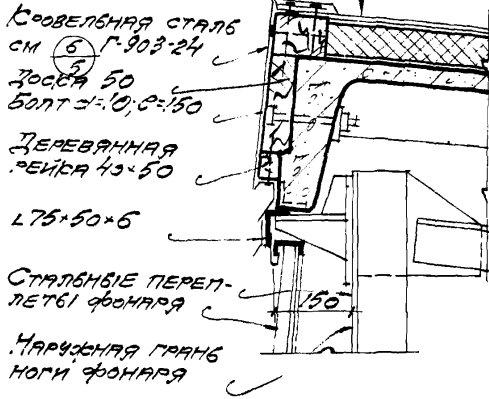 Кровельная сталь
см 6/5 Г-903-24
Доска 50
Болт d=10; ℓ=150
Деревянная
рейка 40×50
∟75×50×6
Стальные переп-
леты фонаря
150
Наружная грань
ноги фонаря